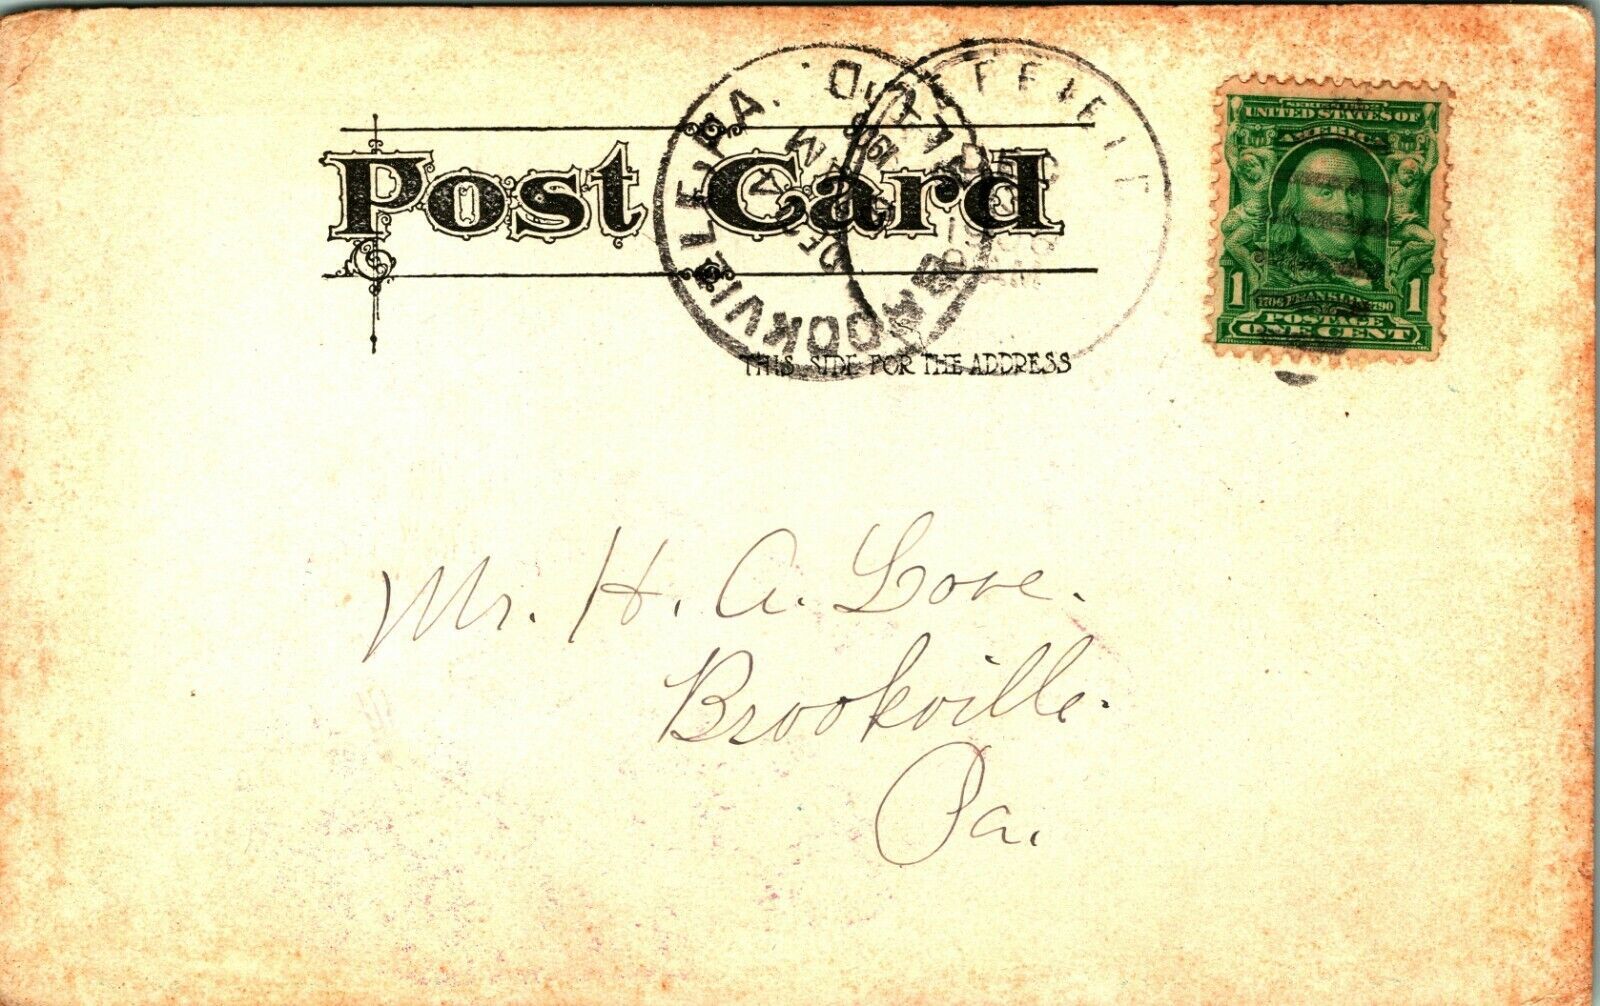 Post Card
BROOKVILLE, PA.
REC'D.
A M
THIS SIDE FOR THE ADDRESS
SERIES 1902
UNITED STATES OF
AMERICA
1 1
1706 FRANKLIN 1790
POSTAGE
ONE CENT
Mr. H. A. Love.
Brookville.
Pa.